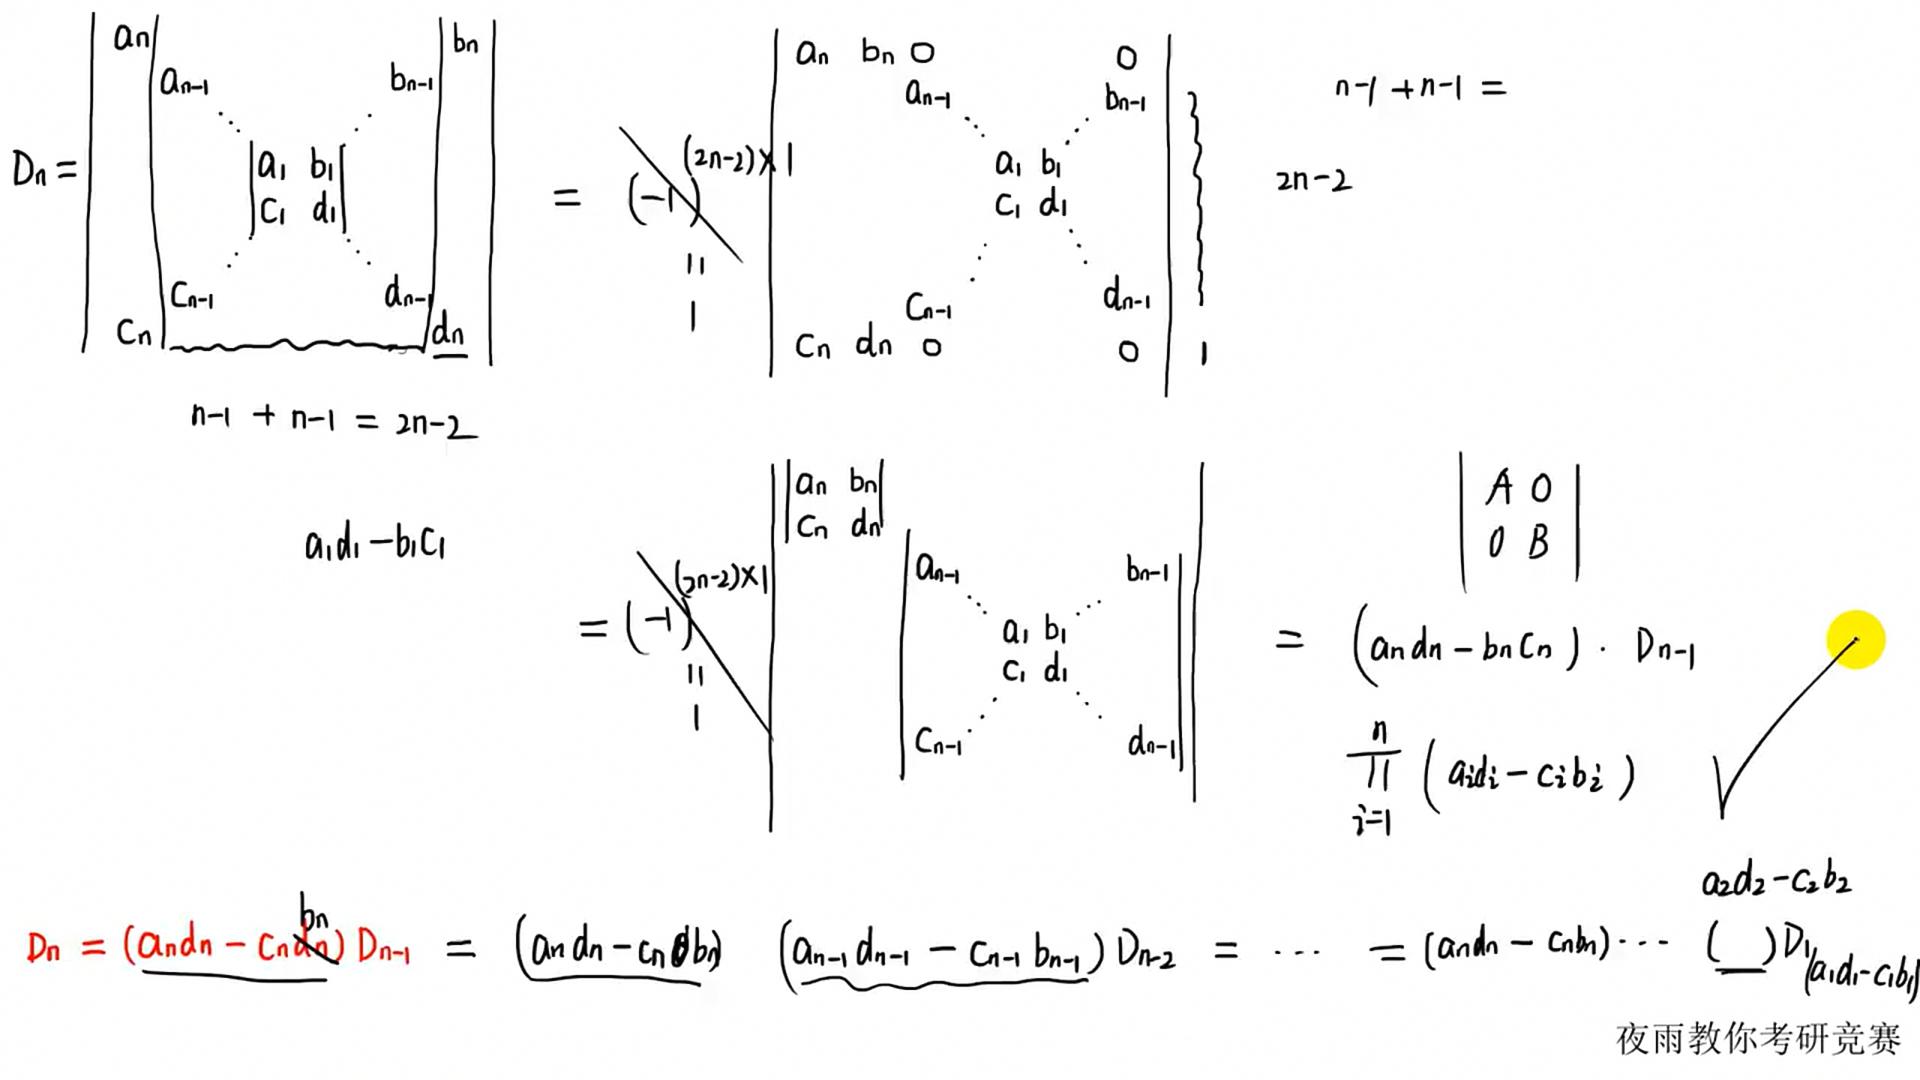 Dₙ =
aₙ bₙ
aₙ₋₁ bₙ₋₁
a₁ b₁
c₁ d₁
cₙ₋₁ dₙ₋₁
cₙ dₙ
n-1 + n-1 = 2n-2
= (-1)^(2n-2)×1
= 1
aₙ bₙ 0 0
aₙ₋₁ bₙ₋₁
a₁ b₁
c₁ d₁
cₙ₋₁ dₙ₋₁
cₙ dₙ 0 0 1
n-1 + n-1 =
2n-2
a₁d₁ - b₁c₁
= (-1)^(2n-2)×1
= 1
aₙ bₙ
cₙ dₙ
aₙ₋₁ bₙ₋₁
a₁ b₁
c₁ d₁
cₙ₋₁ dₙ₋₁
A 0
0 B
= (aₙdₙ - bₙcₙ) · Dₙ₋₁
n
∏ (aᵢdᵢ - cᵢbᵢ)
i=1
a₂d₂ - c₂b₂
bₙ
Dₙ = (aₙdₙ - cₙdₙ) Dₙ₋₁ = (aₙdₙ - cₙbₙ) (aₙ₋₁dₙ₋₁ - cₙ₋₁bₙ₋₁) Dₙ₋₂ = ··· = (aₙdₙ - cₙbₙ) ··· ( ) D₁
(a₁d₁ - c₁b₁)
夜雨教你考研竞赛